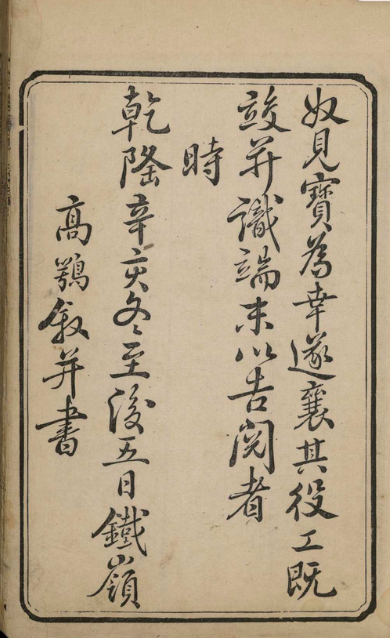 奴見寶為幸遂襄其役工既
竣并識端末以告閱者
時
乾隆辛亥冬至後五日鐵嶺
高鶚敘并書